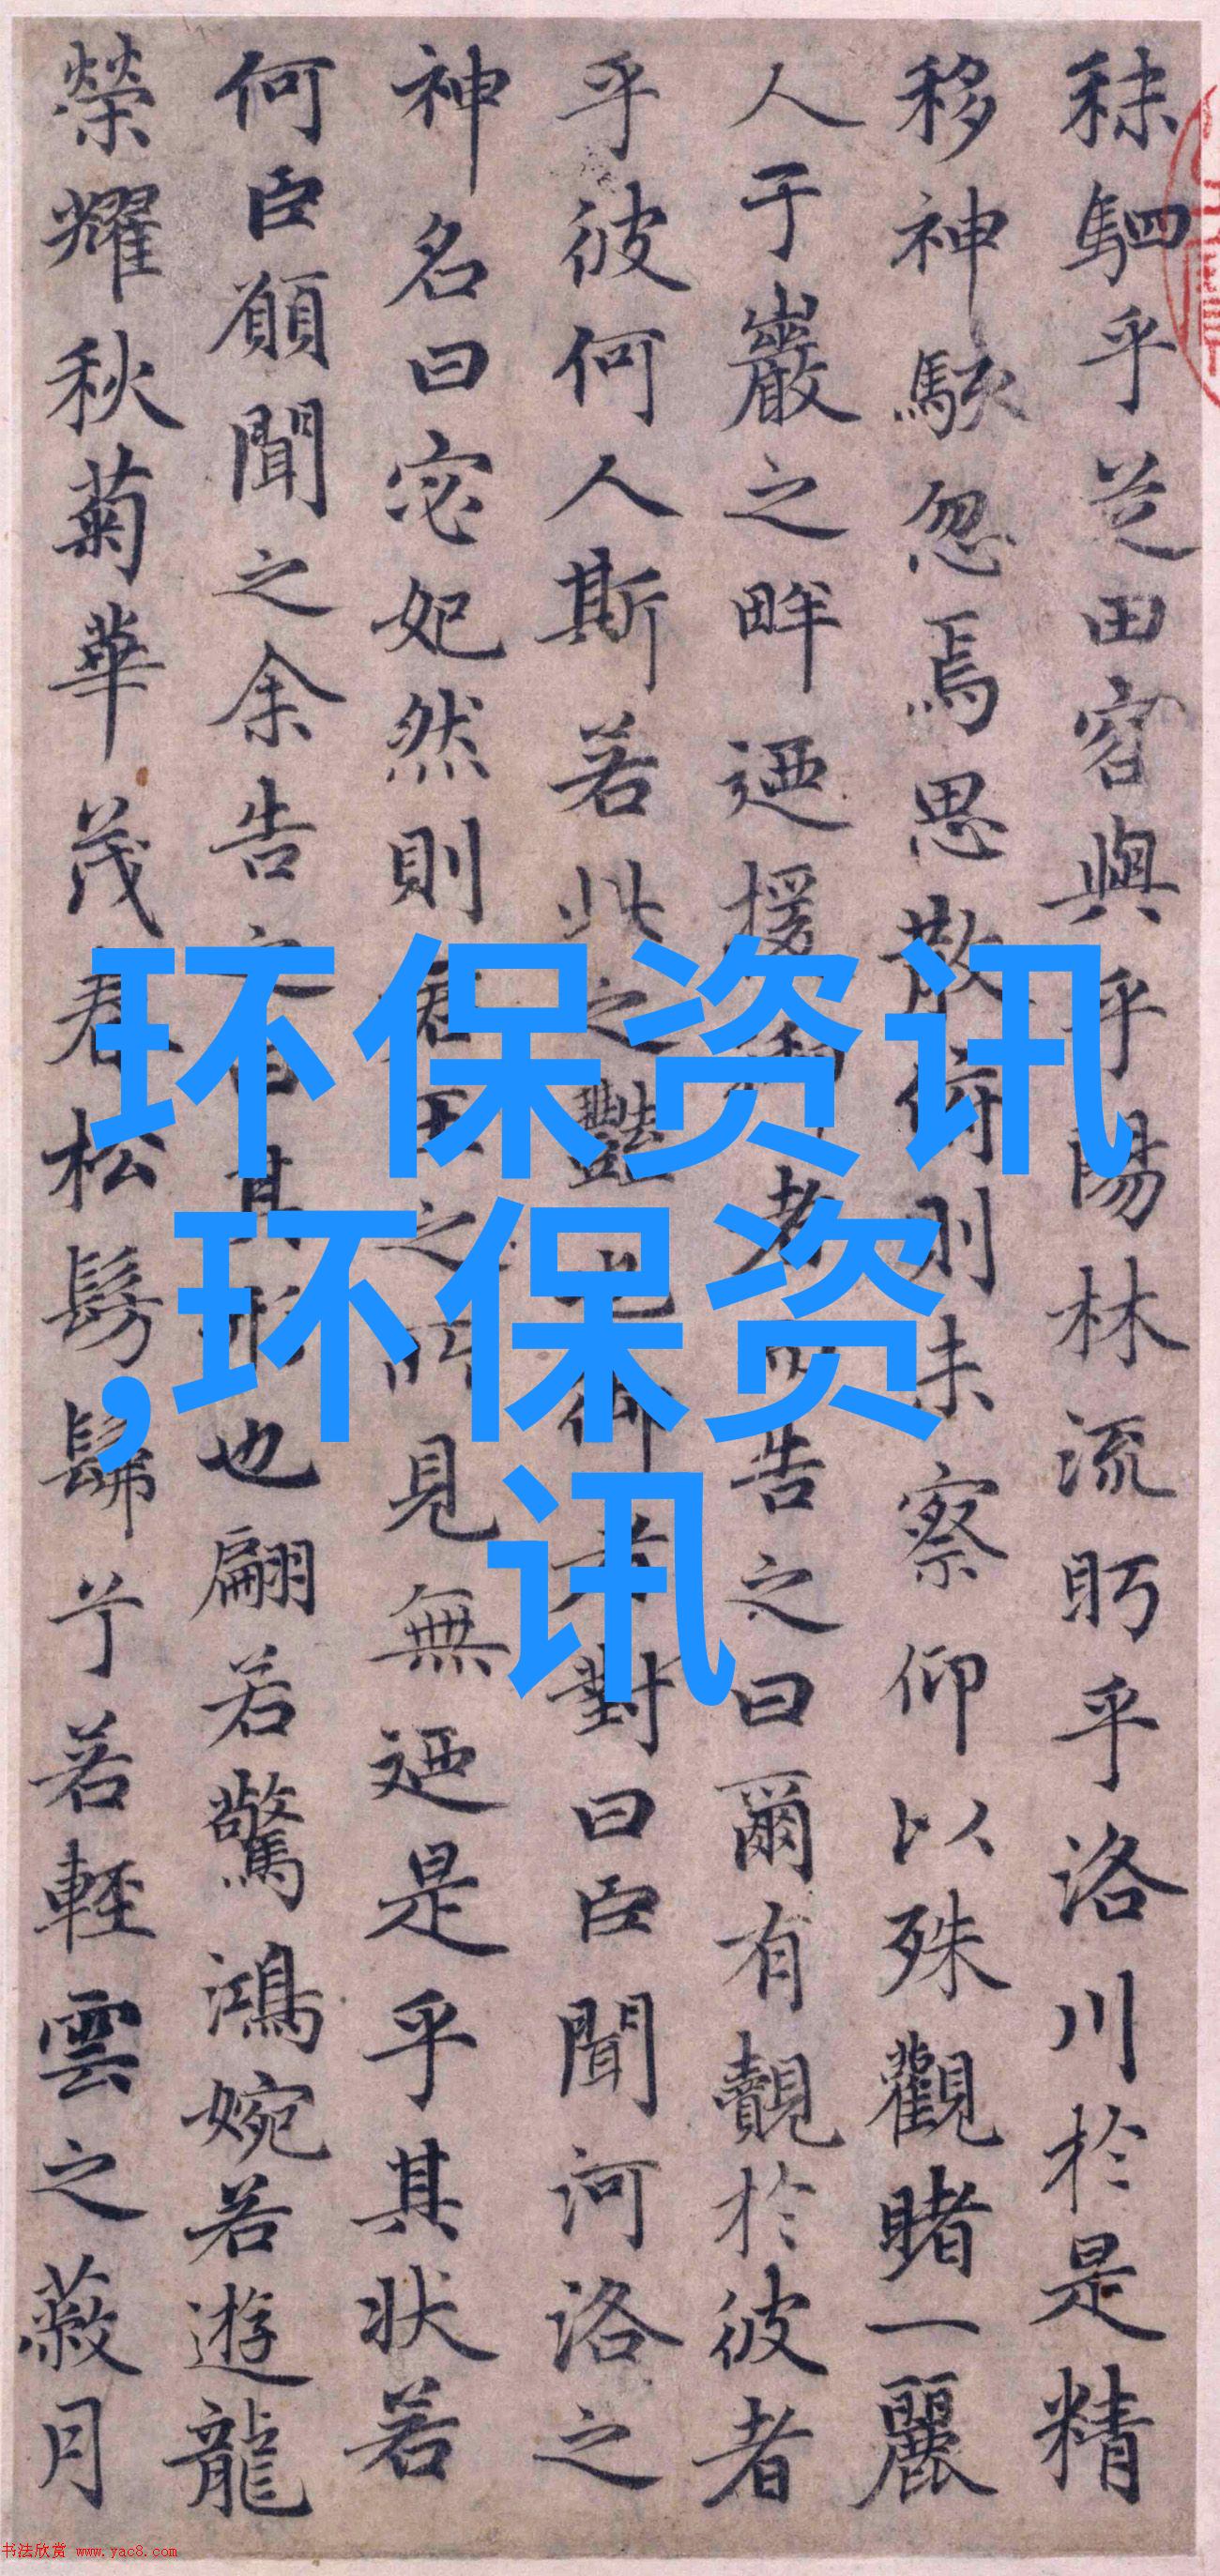 秣駟乎芝田容與乎陽林流眄乎洛川於是精
移神駭忽焉思散俯則未察仰以殊觀睹一麗
人于巖之畔迺援御者而告之曰爾有覿於彼者
乎彼何人斯若此之豔也御者對曰臣聞河洛之
神名曰宓妃然則君王之所見無迺是乎其狀若
何臣願聞之余告之曰其形也翩若驚鴻婉若遊龍
榮耀秋菊華茂春松髣髴兮若輕雲之蔽月
环保资讯
,环保资
讯
书法欣赏 www.yac8.com